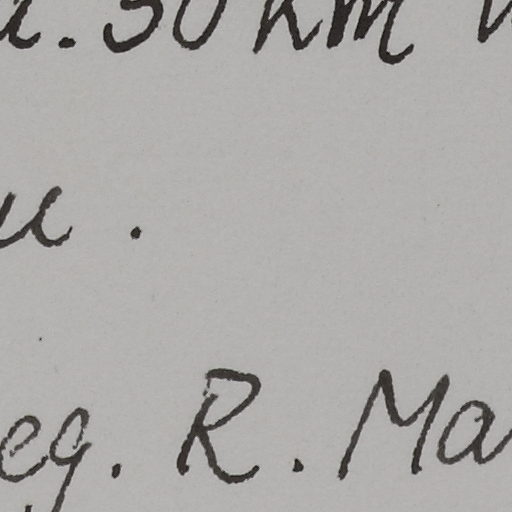 . 30 km
.
leg. R. Ma